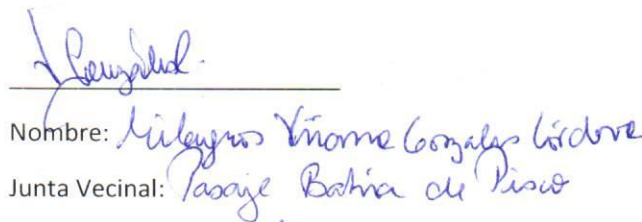 Nombre: Milagros Gonzales Córdova
Junta Vecinal: Pasaje Bahía de Pisco